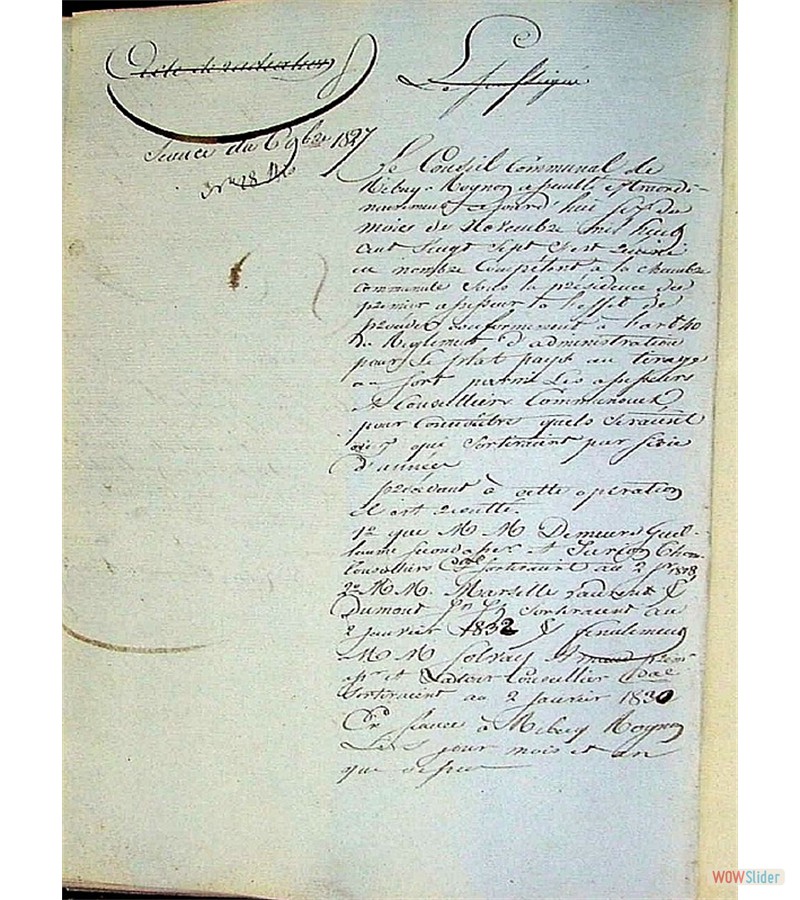 Séance du 6 9bre 1827
Le Conseil Communal de
Ribay-Roynon assemblé extraordi-
nairement aujourd'hui six du
mois de Novembre mil huit
cent vingt sept s'est réuni
en nombre Compétent à la chambre
communale sous la présidence du
premier assesseur à l'effet de
procéder conformement à l'art 40
du Règlement d'administration
pour le plat pays au tirage
au sort parmi les assesseurs
et Conseillers Communaux
pour connaître quels seraient
ceux qui sortiraient par série
d'année
procédant à cette opération
il est résulté
1º que MM Demeurs Guil-
laume second assr et
Conseillers sortiraient au 2 1828
2º MM. Marselle Laurent &
Dumont sortiraient au
2 janvier 1832 & finalement
MM Solvay premr
assr et Conseiller
Sortiraient au 2 janvier 1830
En séance à Roynon
Les jour mois et an
que dessus
WOWSlider